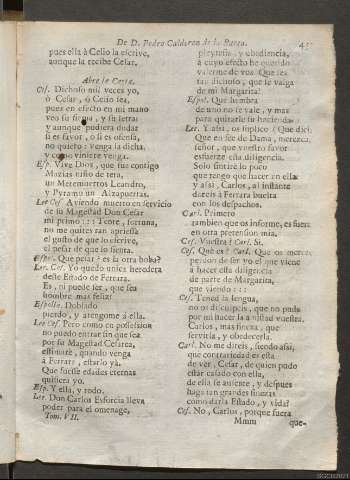 De D. Pedro Calderon de la Barca.
pues ella à Celio la escrive,
aunque la recibe Cesar.
Abre la Carta.
Ces. Dichoso mil veces yo,
ò Cesar, ò Celio sea,
pues en efecto en mi mano
veo su firma, y su letra:
y aunque pudiera dudar
si es favor, ò si es ofensa,
no quiero: venga la dicha,
y como viniere venga.
Esp. Vive Dios, que fue contigo
Mazias niño de teta,
un Metemuertos Leandro,
y Pyramo un Alzapuertas.
Lee Ces. Aviendo muerto en servicio
de su Magestad Don Cesar
mi primo::: Tente, fortuna,
no me quites tan apriessa
el gusto de que lo escrive,
el pesar de que lo sienta.
Esp. Que pesar? es la otra boba?
Lee. Ces. Yo quedo unica heredera
deste Estado de Ferrara.
Es, ni puede ser, que sea
hombre mas feliz?
Espolin. Doblado
pierdo, y atengome à ella.
Lee Ces. Pero como en possession
no puedo entrar sin que sea
por su Magestad Cesarea,
estimarè, quando venga
à Ferrara, estarlo yà.
Que fuesse edades eternas
quisiera yo.
Esp. Y ella, y todo.
Lee. Don Carlos Esforcia lleva
poder para el omenage,
Tom. VII.
pleytesia, y obediencia,
à cuyo efecto he querido
valerme de vos. Que res-
tan dichoso, que le valga
de mi Margarita?
Espol. Que hombra
de uno no se vale, y mas
para quitarle su hacienda.
Lee. Y assi, os suplico (Que dicha
Que en fee de Dama, merezca,
señor, que vuestro favor
esfuerze esta diligencia.
Solo sentirè lo poco
que tengo que hacer en ella:
y assi, Carlos, al instante
dareis à Ferrara buelta
con los despachos.
Carl. Primero
tambien que os informe, es fuerza
en otra pretension mia.
Ces. Vuestra? Carl. Si.
Ces. Què es? Carl. Que os merezca
perdon de ser yo el que viene
à hacer esta diligencia
de parte de Margarita,
que viendo:::
Ces. Tened la lengua,
no os disculpeis, que no pudo
por mi hacerla à vistad vuestra.
Carlos, mas fineza, que
servirla, y obedecerla.
Carl. No me direis, siendo assi,
que contrariedad es esta
de ver, Cesar, de quien pudo
estàr casado con ella,
de ella se ausente, y despues
haga tan grandes finezas
como darla Estado, y vida?
Ces. No, Carlos, porque fuera
Mmm que-